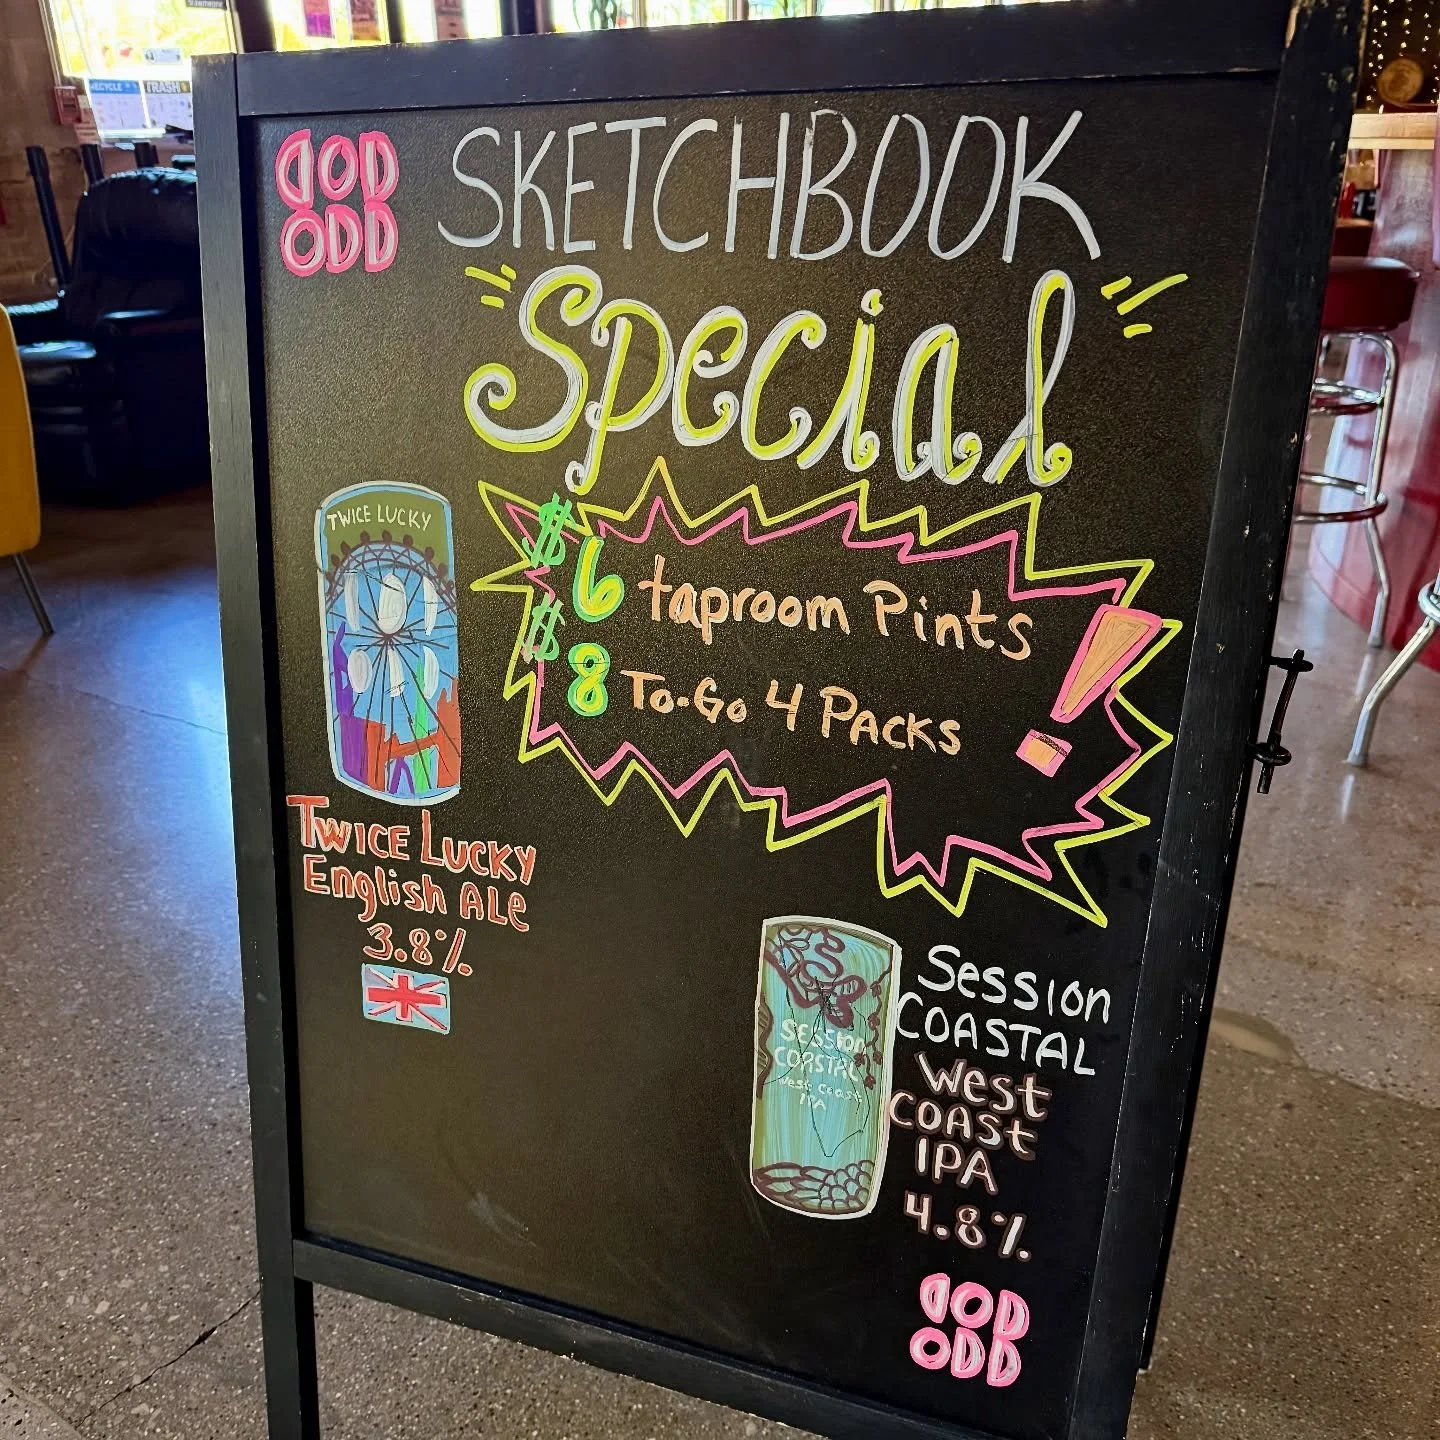 RECYCLE
TRASH
SKETCHBOOK
Special
$6 taproom Pints
$8 To-Go 4 PACKS !
TWICE LUCKY
TWICE LUCKY
English ALe
3.8%
SESSION
COASTAL
West Coast
IPA
Session
COASTAL
West
COAst
IPA
4.8%